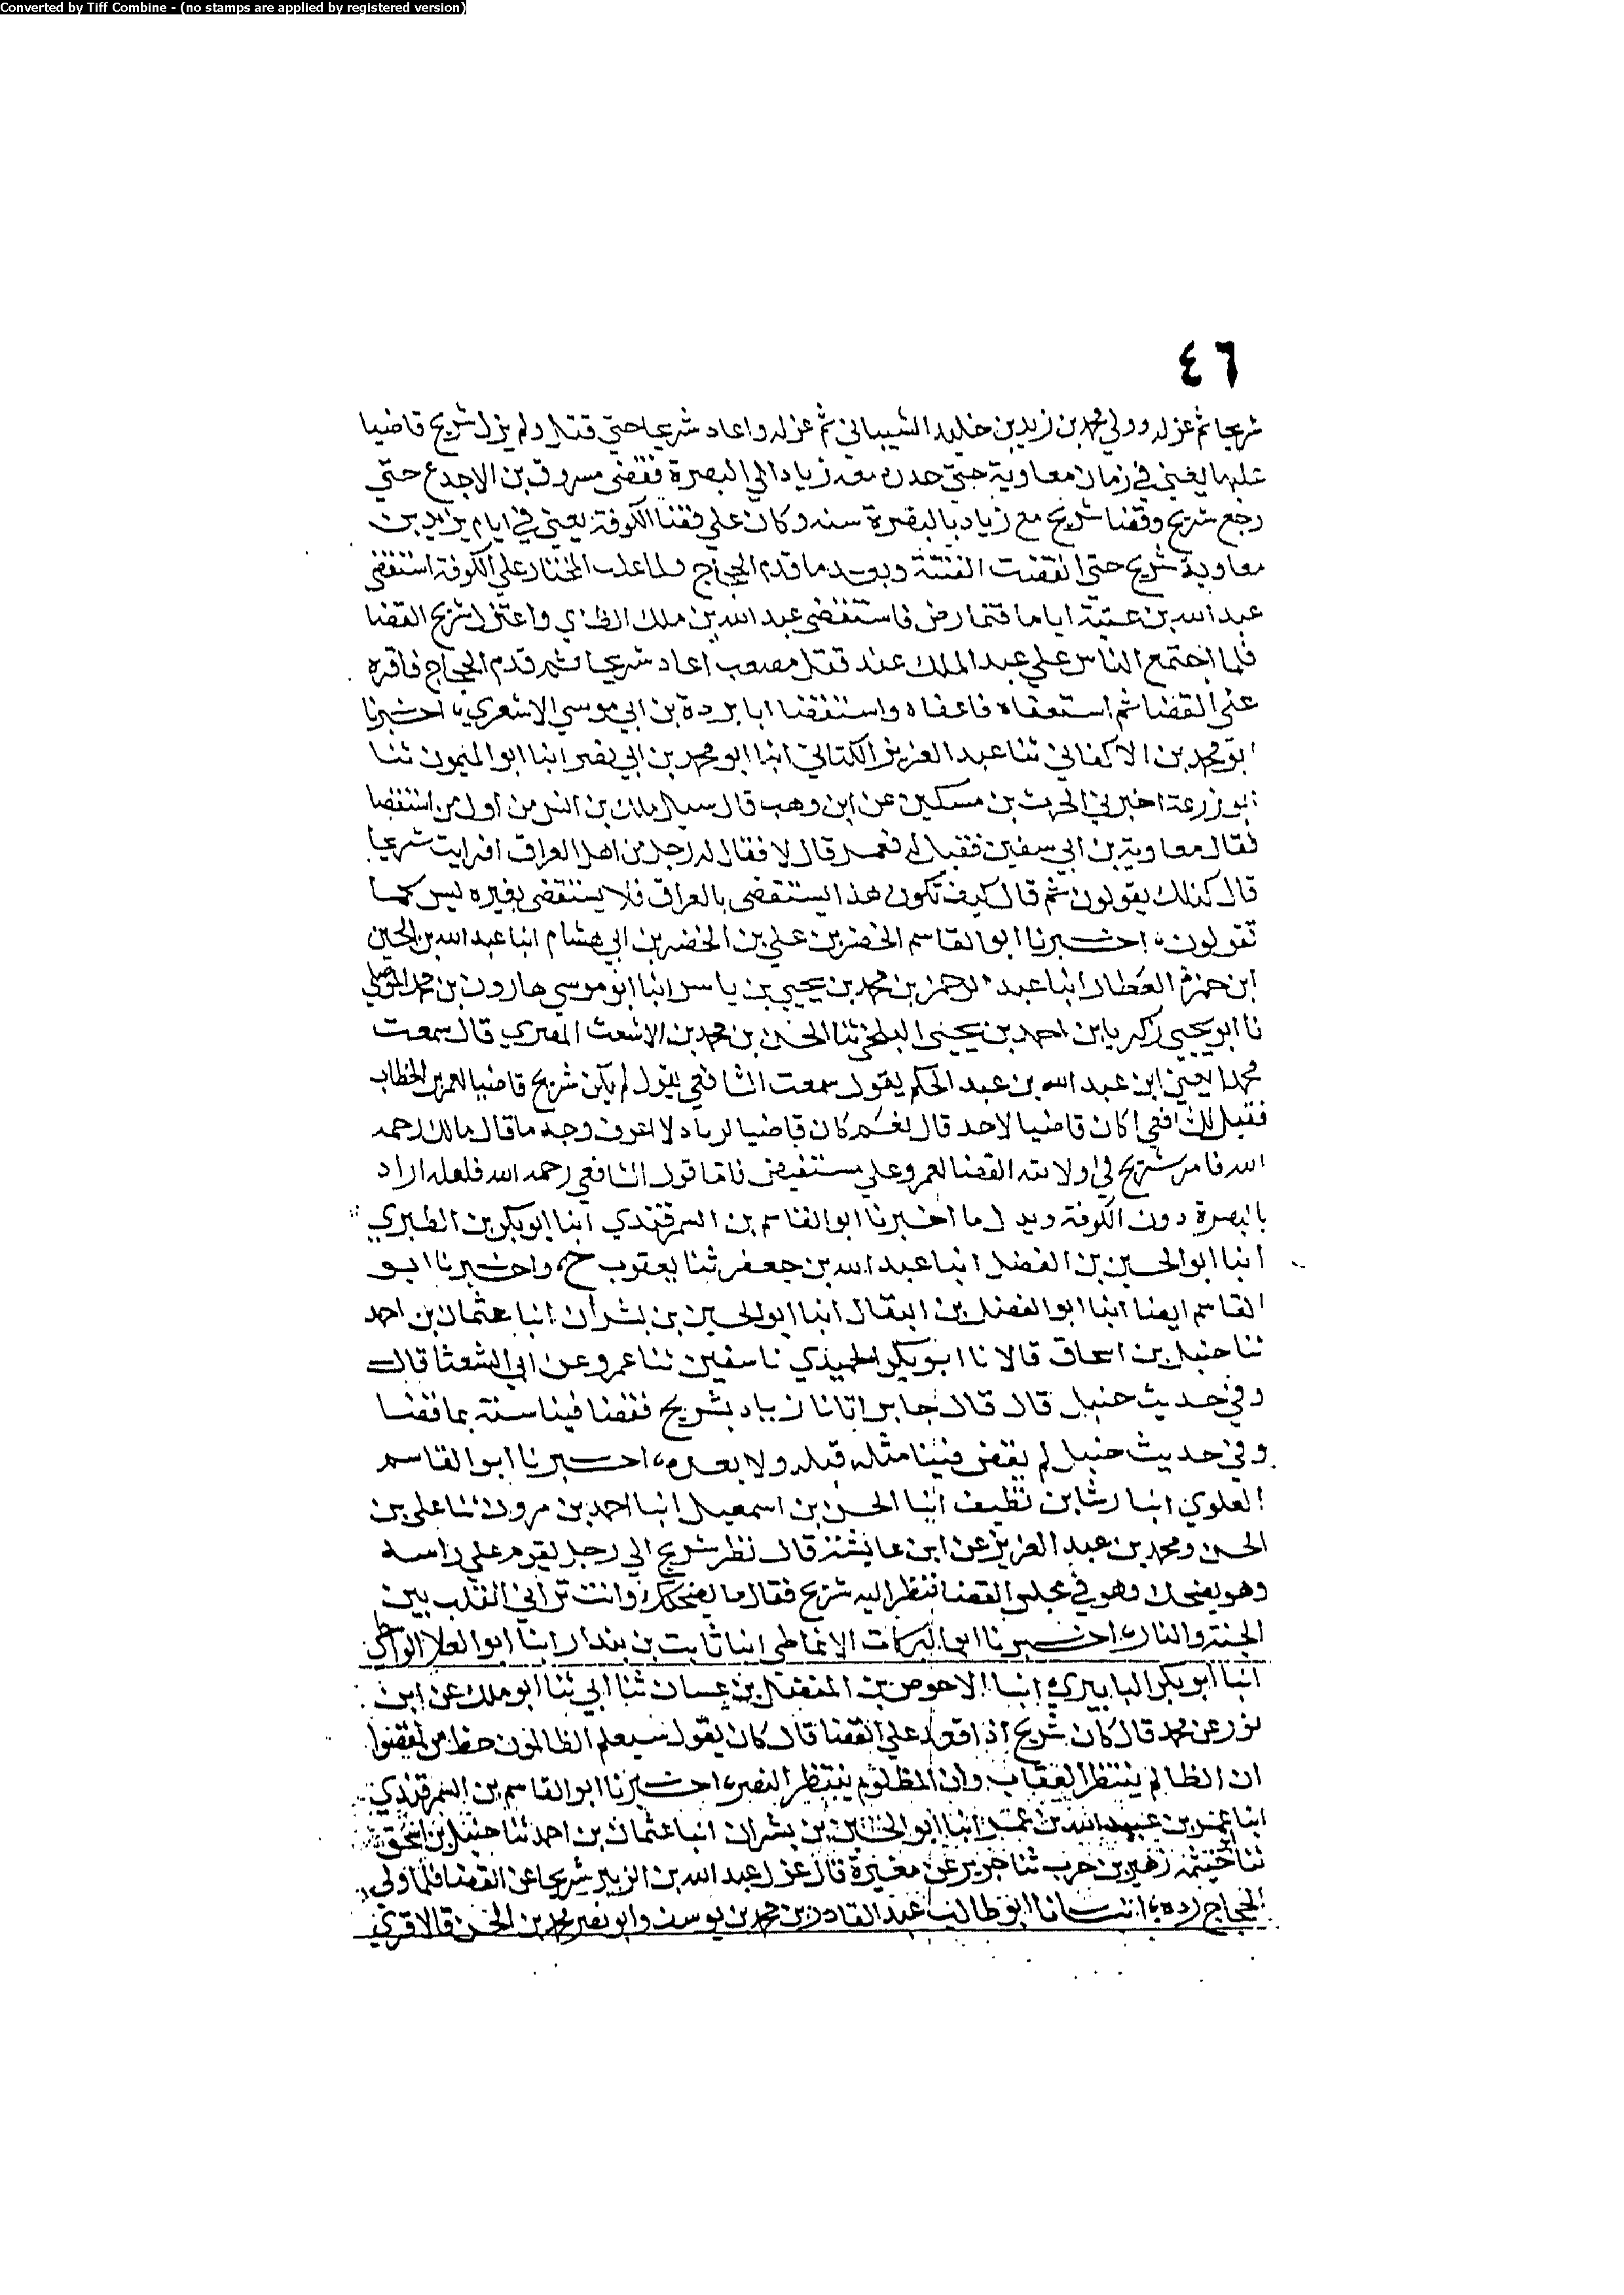 Converted by Tiff Combine - (no stamps are applied by registered version)
٤٦
شريحا ثم عزله وولي محمد بن زيد بن خليد الشيباني ثم عزله واعاد شريحا حتى قتل ولم يزل شريح قاضيا
عليها يعني في زمان معاوية حتى حدره معه زياد الي البصرة فقضى مسروق بن الاجدع حتي
رجع شريح وقضا شريح مع زياد بالبصرة سنه وكان علي قضا الكوفة يعني في ايام يزيد بن
معاوية شريح حتى انقضت الفتنة وبعدما قدم الحجاج ولما غلب المختار علي الكوفة استقضى
عبد الله بن عتبة اياما فتمارض فاستقضى عبد الله بن ملك الطائي واعتزل شريح القضا
فلما اجتمع الناس علي عبد الملك عند قتل مصعب اعاد شريحا ثم قدم الحجاج فاقره
علي القضا ثم استعفاه فاعفاه واستقضا ابا بردة بن ابي موسي الاشعري، اخبرنا
ابو محمد بن الاكفاني ثنا عبد العزيز الكتاني انبا ابو محمد بن ابي نصر انبا ابو الميمون ثنا
ابو زرعة اخبرني الحرث بن مسكين عن ابن وهب قال سيل ملك بن انس من اول من استقضا
فقال معاوية بن ابي سفين فقيل له فعمر قال لا فقال له رجل من اهل العراق افرايت شريحا
قال كذلك يقولون ثم قال كيف تكون هذا يستقضى بالعراق فلا يستقضى بغيره ليس كما
تقولون، اخبرنا ابو القاسم الخضر بن علي بن الخضر بن ابي هشام انبا عبد الله بن الحسين
ابن حمزة العطار انبا عبد الرحمن بن محمد بن يحيي بن ياسر انبا ابو موسي هارون بن محمد الموصلي
نا ابو يحيي زكريا بن احمد بن يحيى البلخي ثنا الحسن بن محمد بن الاشعث المصري قال سمعت
محمدا يعني ابن عبد الله بن عبد الحكم يقول سمعت الشافعي يقول لم يكن شريح قاضيا لعمر بن الخطاب
فقيل للشافعي اكان قاضيا لاحد قال نعم كان قاضيا لزياد لا اعرف وجه ما قال مالك رحمه
الله فامر شريح في ولايته القضا لعمر وعلي مستفيض فاما قول الشافعي رحمه الله فلعله اراد
بالبصرة دون الكوفة ويدل ما اخبرنا ابو القاسم بن السمرقندي انبا ابو بكر بن الطبري
انبا ابو الحسين بن الفضل انبا عبد الله بن جعفر ثنا يعقوب ح، واخبرنا ابو
القاسم ايضا انبا ابو الفضل بن البقال انبا ابو الحسين بن بشران انبا عثمان بن احمد
ثنا حنبل بن اسحاق قالا نا ابو بكر الحميدي نا سفين ثنا عمرو عن ابي الشعثا قال
وفي حديث حنبل قال قال جابر اتانا زياد بشريح فقضا فينا سنة بما قضا
وفي حديث حنبل لم يقض فينا مثله قبله ولا بعده، اخبرنا ابو القاسم
العلوي انبا رشا بن نظيف انبا الحسن بن اسمعيل انبا احمد بن مرون ثنا علي بن
الحسن ومحمد بن عبد العزيز عن ابن عايشة قال نظر شريح الي رجل يقوم علي راسه
وهو يضحك وهو في مجلس القضا فنظر اليه شريح فقال ما يضحكك وانت تراني اتقلب بين
الجنة والنار، اخبرنا ابو البركات الانماطي انبا ثابت بن بندار انبا ابو العلا الواسطي
انبا ابو بكر البابيري انبا الاحوص بن المفضل بن غسان ثنا ابي ثنا ابو ملك عن ابن
عن محمد قال كان شريح اذا قعد علي القضا قال كان يقول سيعلم الظالمون حظ من نقضوا
ان الظالم ينتظر العقاب وان المظلوم ينتظر النصر، اخبرنا ابو القاسم بن السمرقندي
انبا عمر بن عبيد الله بن عمر انبا ابو الحسين بن بشران انبا عثمان بن احمد ثنا حنبل بن اسحق
ثنا خيثمة زهير بن حرب ثنا جرير عن مغيرة قال عزل عبد الله بن الزبير شريحا عن القضا فلما ولي
الحجاج رده، انبانا ابو طالب عبد القادر بن محمد بن يوسف وابو نصر محمد بن الحسن قالا قري